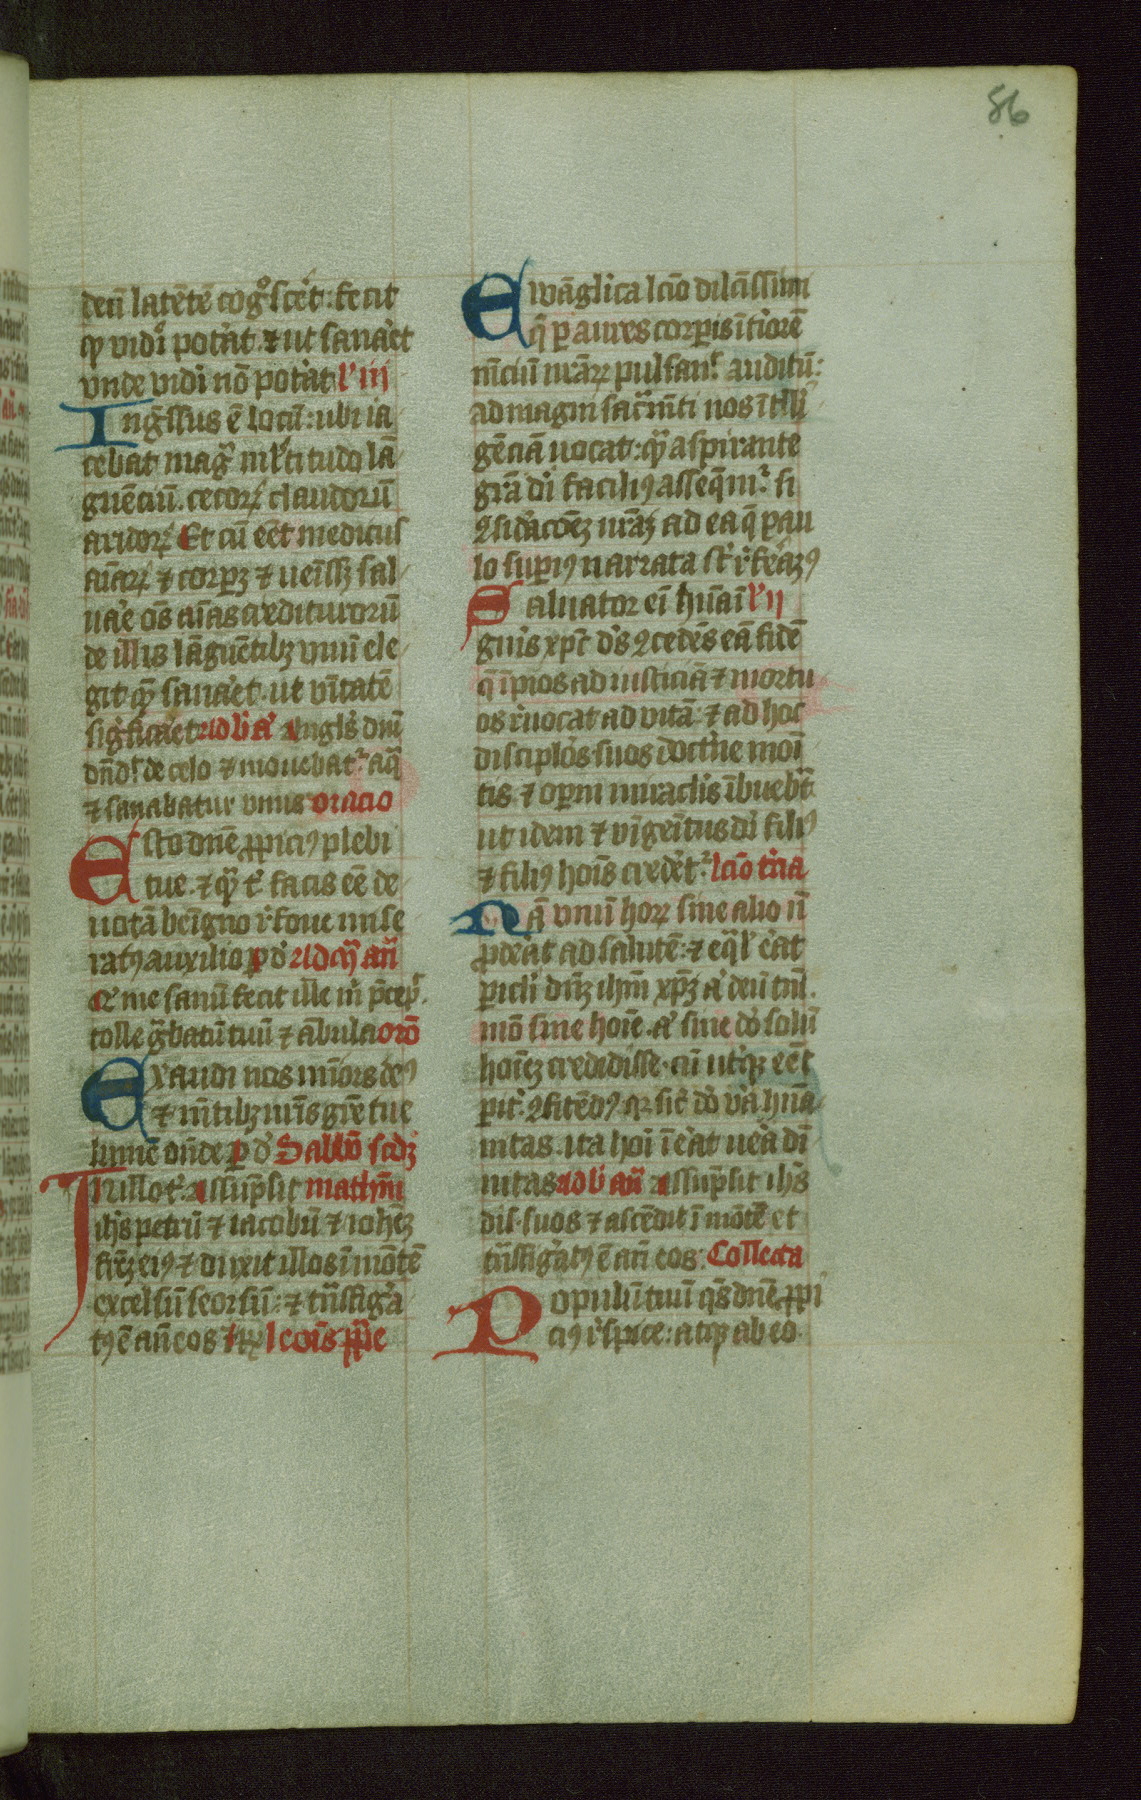 86
deū latētē cogͦscēt: fecit
qͥ vidī potᵃt. ⁊ ut sanaēt
vnde vidi nō potᵃt lͦ iii
Ingͤssus ē locū: ubi ia
cebat magͣ ml̄titudo lā
guēciū. cecoꝝ claudoꝝū
aridoꝝ Et cū eēt medicus
aīaꝝ ⁊ corpꝝ ⁊ ueīssꝫ sal
uaͤ oēs aīas credituroꝝū
de illis lāguētibꝫ vnū ele
git qͫ sanaēt. ut vnitatē
sigͥficaēt ad bn̄ aᷓ Angl̄s dnī
dn̄dͥt de celo ⁊ mouebatᷣ aqᷓ
⁊ sanabatur vnus oracio
Esto dnē ꝓpiciꝰ plebi
tue. ⁊ qͫ tͥ facis eē de
uotā benīgno rͤfoue mise
ratꝰ auxilio p dͦ ad mͣ añ
Qͥ me sanū fecit ille m̄ p̄cepͭ.
tolle gᷓbatū tuū ⁊ ābula orō
Exaudi nos mīors deꝰ
⁊ mētibꝫ nr̄is grē tue
lumē oñde p dͦ Sabbō scdꝫ
In illo tͤ. Assūpsit mathm̄
ih̄s petrū ⁊ iacobū ⁊ iohēꝫ
frēꝫ eiꝰ ⁊ duxit illos ī mōtē
excelsū seorsū: ⁊ tn̄sfigͥa
tꝰ ē añ eos ⁊ rͧ lcoīs ppͤe
Ewāglica lcō dilc̄issimi
q̄ p aures corpis īt̄iorē
mēciū nr̄aꝝ pulsauͭ auditū:
ad magni sacᷓmēti nos ītelli
gēciā uocat: qᷓ aspirante
grᷓa dī faciliꝰ asseq̄mͬ si
ꝯsidᵃcōeꝫ nr̄aꝫ ad ea q̄ pau
lo supiꝰ narrata st̄ rͤfeᷓꝫꝰ
Saluator eī hn̄aī lͦ ii
gn̄is xpc̄ ih̄s ꝯcedēs eā fidē
q̄ īpios ad iusticiā ⁊ mortu
os rͤuocat ad vitā: ⁊ ad hoc
disciplōs suos doctⁱne moī
tis. ⁊ opm miraclis ībuebᷓt
ut idem ⁊ vnīgēitus dī filiꝰ
⁊ filiꝰ hoīs credēͭtᷣ lcō tⁱcia
Nā vnū hoꝝ sine alio nō
ꝓdēᷓt ad salutē: ⁊ eqᷓlͥ ēat
picli dn̄ꝫ ihm̄ xpꝫ aͭ deū tm̄.
mō sine hoīe. aͭ sine dͦ solū
hoīeꝫ credidisse. cū utͥqꝫ eēt
pitͥ ꝯfitēdꝰ qꝛ sicͭ dō vᷓa hūa
nitas. ita hoī īeᷓt uᷓa dī
nitas ad bn̄ añ Assūpsit ih̄s
dis. suos ⁊ ascēdit ī mōtē et
tn̄sfigͧatꝰ ē añ eos. Collecta
Populū tuū qͣs dnē ꝓpi
ciꝰ rͤspice: atqꝫ ab eo